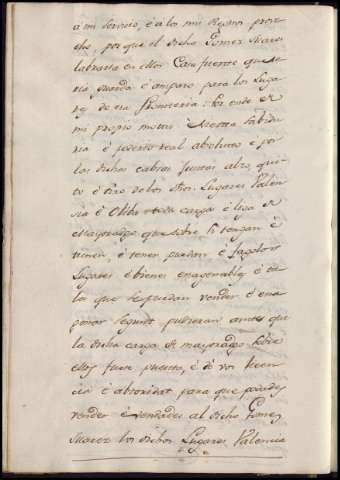 á mi servicio, é á los mis Regnos prove-
cho, por que el dicho Gomez Suarez
labraria en ellos Casa fuerte que se-
ria guarda é amparo para los Luga-
res de esa Frontera: Por ende de
mi propio motu é cierta sabidu-
ria é poderio real absoluto é por
los dichos cabros juntos alzo, qui-
to é tiro de los dhos. Lugares Valen-
cia é Oliba toda carga é liga de
Mayoradgo que sobre si tengan é
tienen, é tener puedan é fagolos
Lugares é bienes enagenables é ta-
les que se puedan vender é ena-
genar segunt pudieran antes que
la dicha carga de mayoradgo sobre
ellos fuese puesta, é do vos licen-
cia é abtoridat para que podades
vender é vendades al dicho Gomez
Suarez los dichos Lugares Valencia